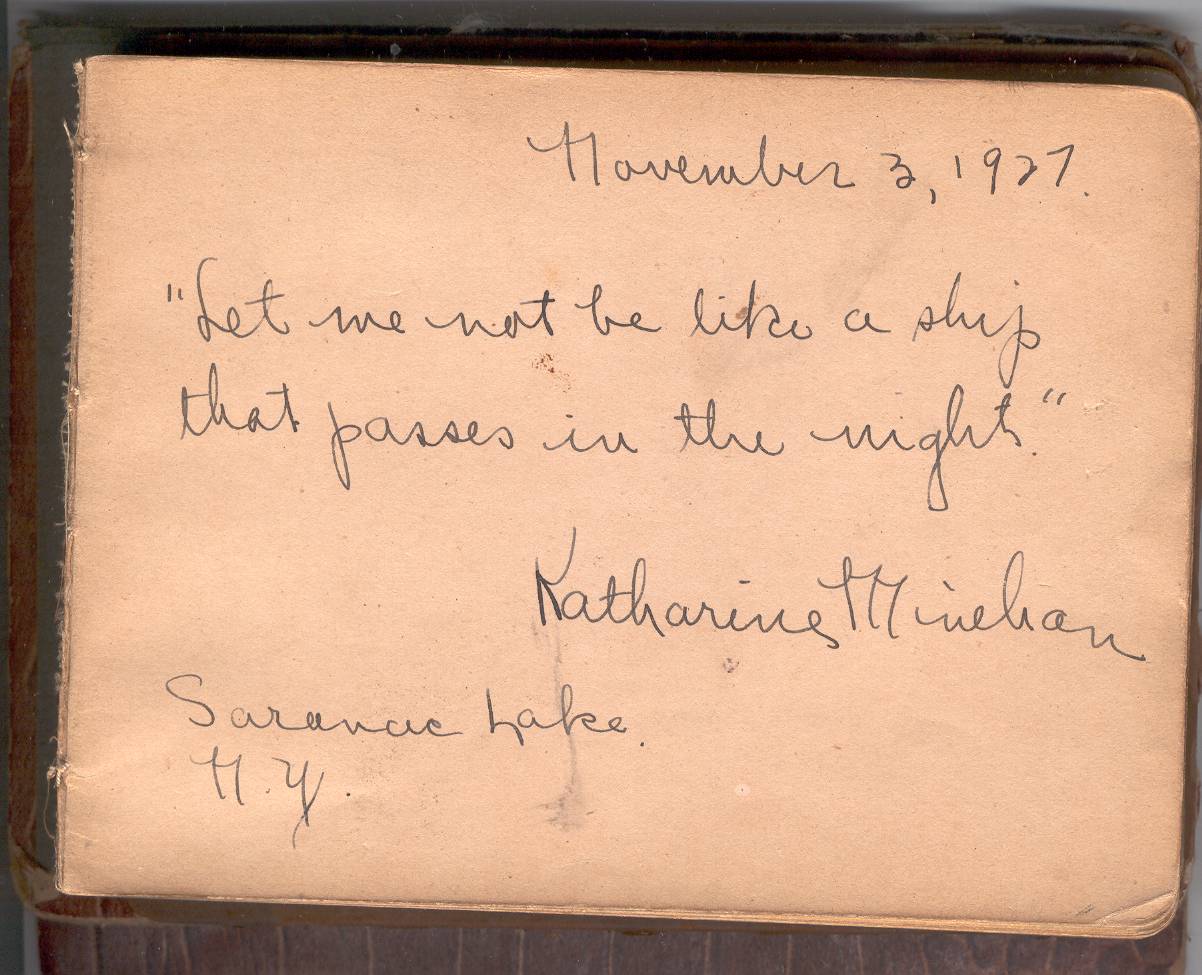 November 3, 1927.
"Let me not be like a ship
that passes in the night."
Katharine Minehan
Saranac Lake.
N.Y.